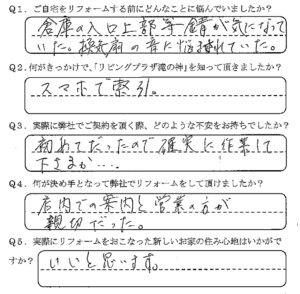 Q1. ご自宅をリフォームする前にどんなことに悩んでいましたか?
倉庫の入口上部等 錆が気になって
いた。換気扇の音に悩まされていた。
Q2. 何がきっかけで、「リビングプラザ滝の神」を知って頂きましたか?
スマホで索引。
Q3. 実際に弊社でご契約を頂く際、どのような不安をお持ちでしたか?
初めてだったので確実に作業して
下さるか…。
Q4. 何が決め手となって弊社でリフォームをして頂けましたか?
店内での案内と営業の方が
親切だった。
Q5. 実際にリフォームをおこなった新しいお家の住み心地はいかがで
すか?
いいと思います。